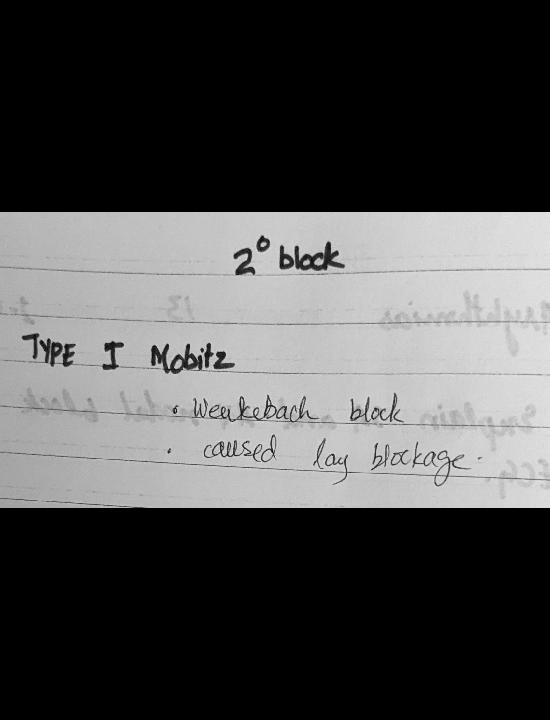 2° block
TYPE I Mobitz
• Wenkebach block
• caused lay blockage.